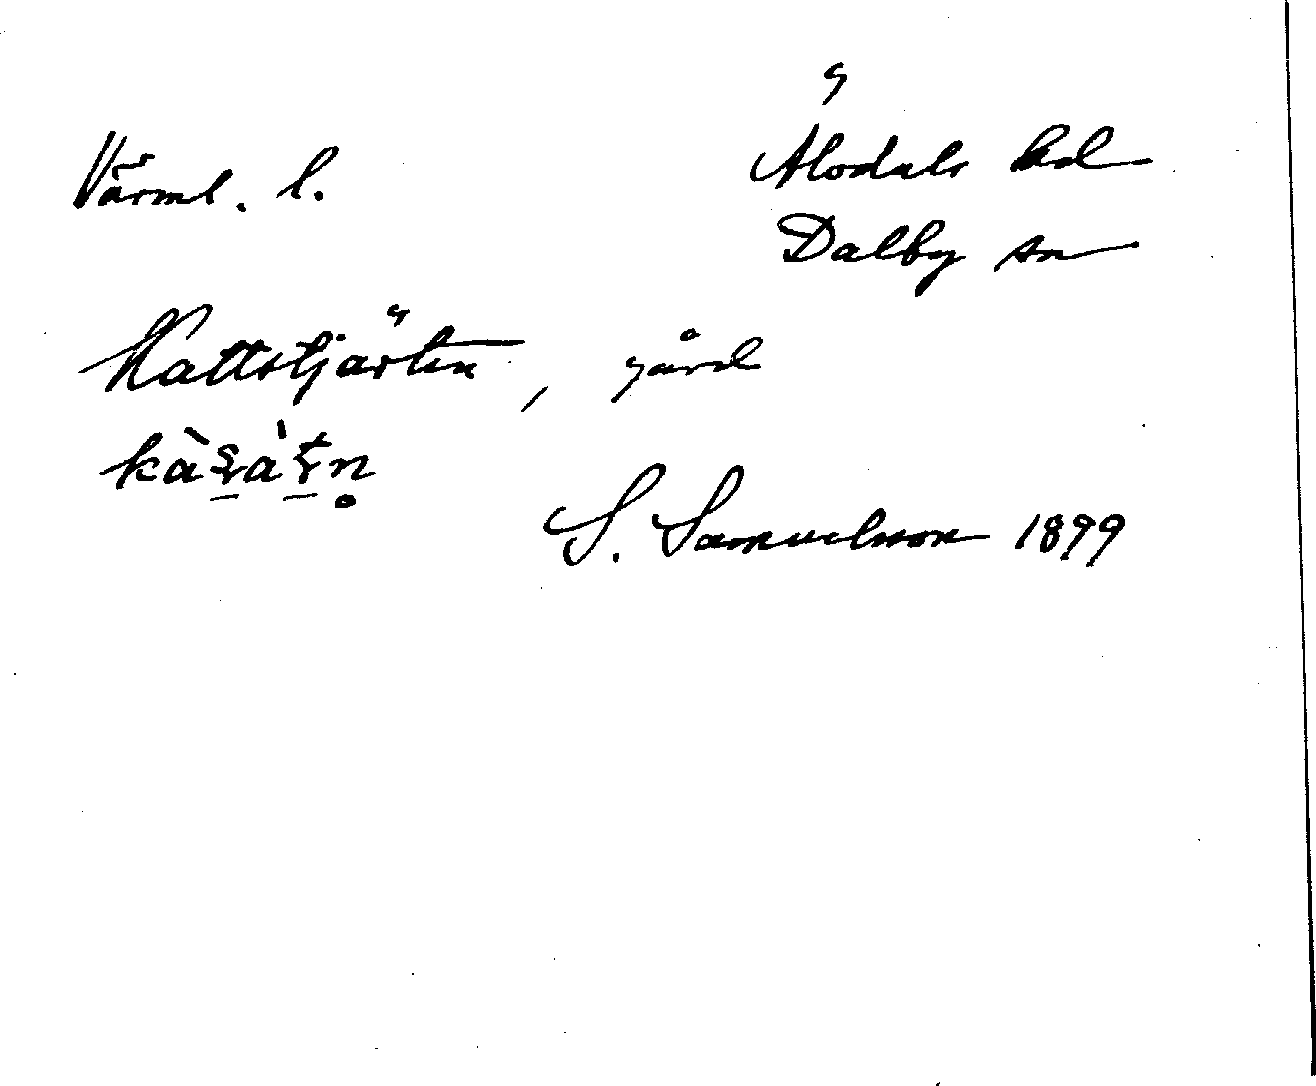 Värml. l.
Älvdals hd
Dalby sn
Kattstjärten, gård
S. Samuelsson 1899